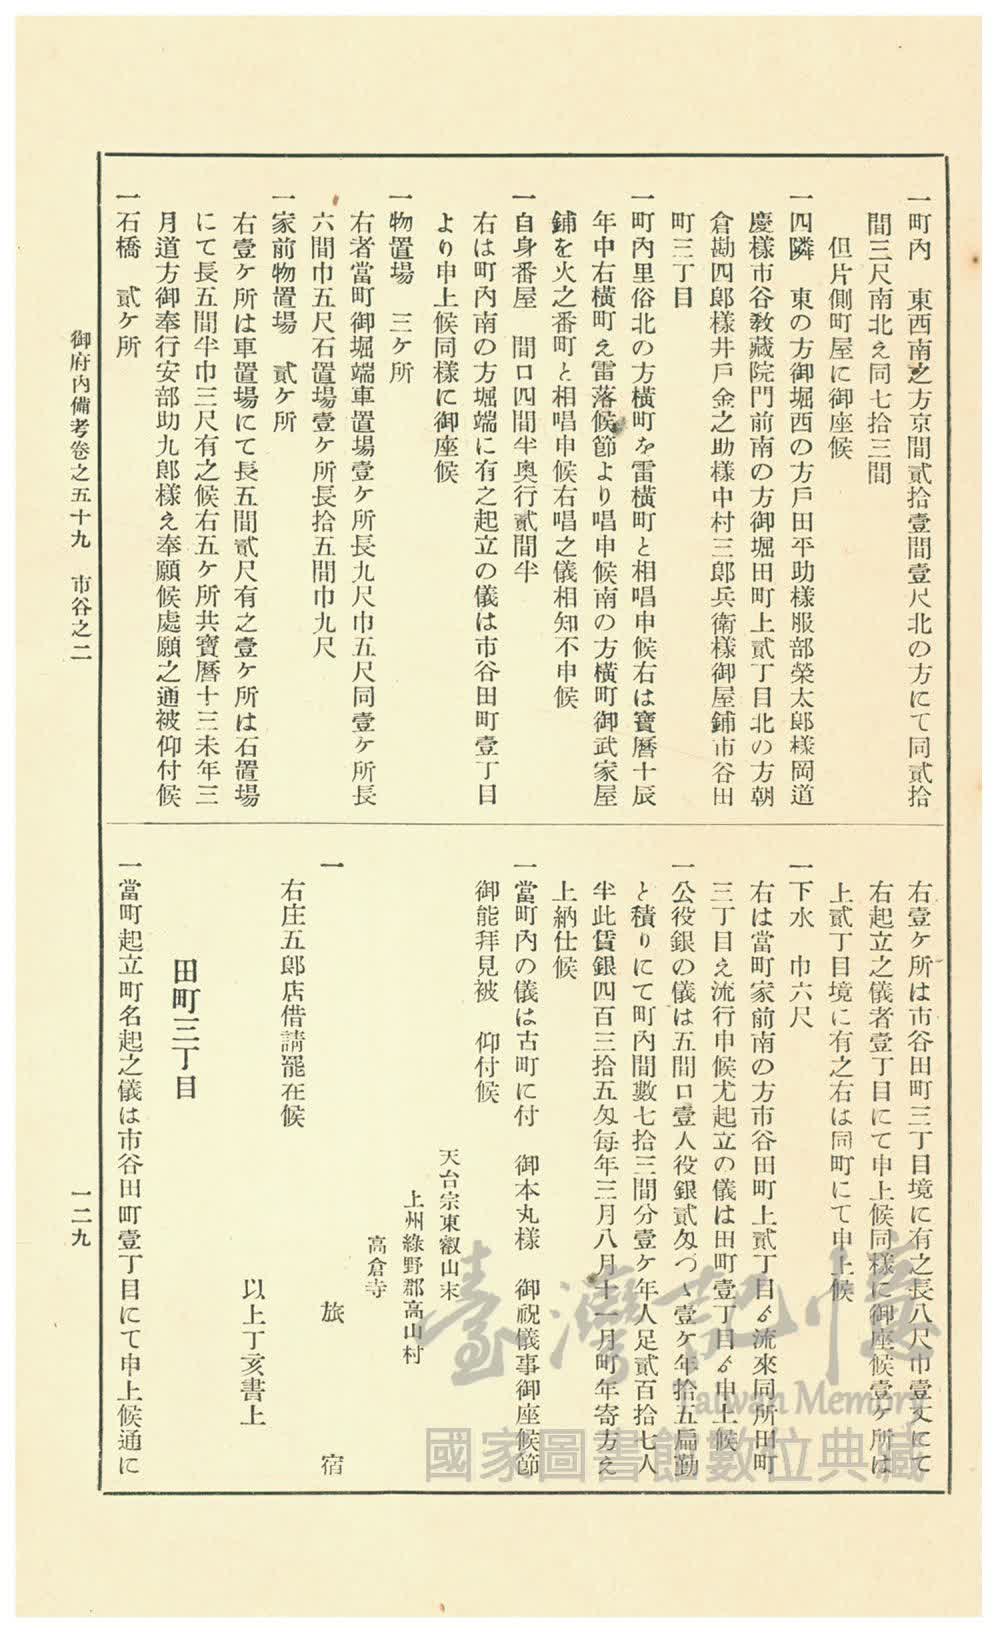 一町內　東西南之方京間貳拾壹間壹尺北の方にて同貳拾
間三尺南北え同七拾三間
但片側町屋に御座候
一四隣　東の方御堀西の方戶田平助樣服部榮太郎樣岡道
慶樣市谷敎藏院門前南の方御堀田町上貳丁目北の方朝
倉勘四郎樣井戶金之助樣中村三郎兵衛樣御屋鋪市谷田
町三丁目
一町內里俗北の方橫町を雷橫町と相唱申候右は寶曆十辰
年中右橫町え雷落候節より唱申候南の方橫町御武家屋
鋪を火之番町と相唱申候右唱之儀相知不申候
一自身番屋　間口四間半奧行貳間半
右は町內南の方堀端に有之起立の儀は市谷田町壹丁目
より申上候同樣に御座候
一物置場　三ケ所
右者當町御堀端車置場壹ケ所長九尺巾五尺同壹ケ所長
六間巾五尺石置場壹ケ所長拾五間巾九尺
一家前物置場　貳ケ所
右壹ケ所は車置場にて長五間貳尺有之壹ケ所は石置場
にて長五間半巾三尺有之候右五ケ所共寶曆十三未年三
月道方御奉行安部助九郎樣え奉願候處願之通被仰付候
一石橋　貳ケ所
右壹ケ所は市谷田町三丁目境に有之長八尺巾壹丈にて
右起立之儀者壹丁目にて申上候同樣に御座候壹ケ所は
上貳丁目境に有之右は同町にて申上候
一下水　巾六尺
右は當町家前南の方市谷田町上貳丁目ゟ流來同所田町
三丁目え流行申候尤起立の儀は田町壹丁目ゟ申上候
一公役銀の儀は五間口壹人役銀貳匁づゝ壹ケ年拾五扁勤
と積りにて町內間數七拾三間分壹ケ年人足貳百拾七人
半此賃銀四百三拾五匁每年三月八月十一月町年寄方え
上納仕候
一當町內の儀は古町に付　御本丸樣　御祝儀事御座候節
御能拜見被　仰付候
天台宗東叡山末
上州綠野郡高山村
高倉寺
一　旅宿
右庄五郎店借請罷在候
以上丁亥書上
田町三丁目
一當町起立町名起之儀は市谷田町壹丁目にて申上候通に
御府內備考卷之五十九　市谷之二
一二九
臺灣記憶
Taiwan Memory
國家圖書館數位典藏